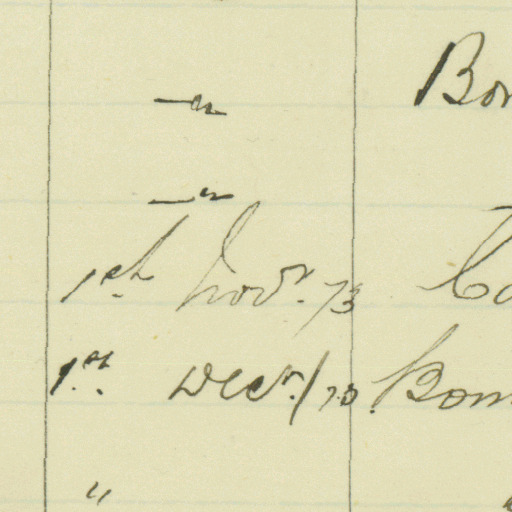 —"— Bom
—"—
1st Novr. 73 Ca
1st Decr./73. Bom
"